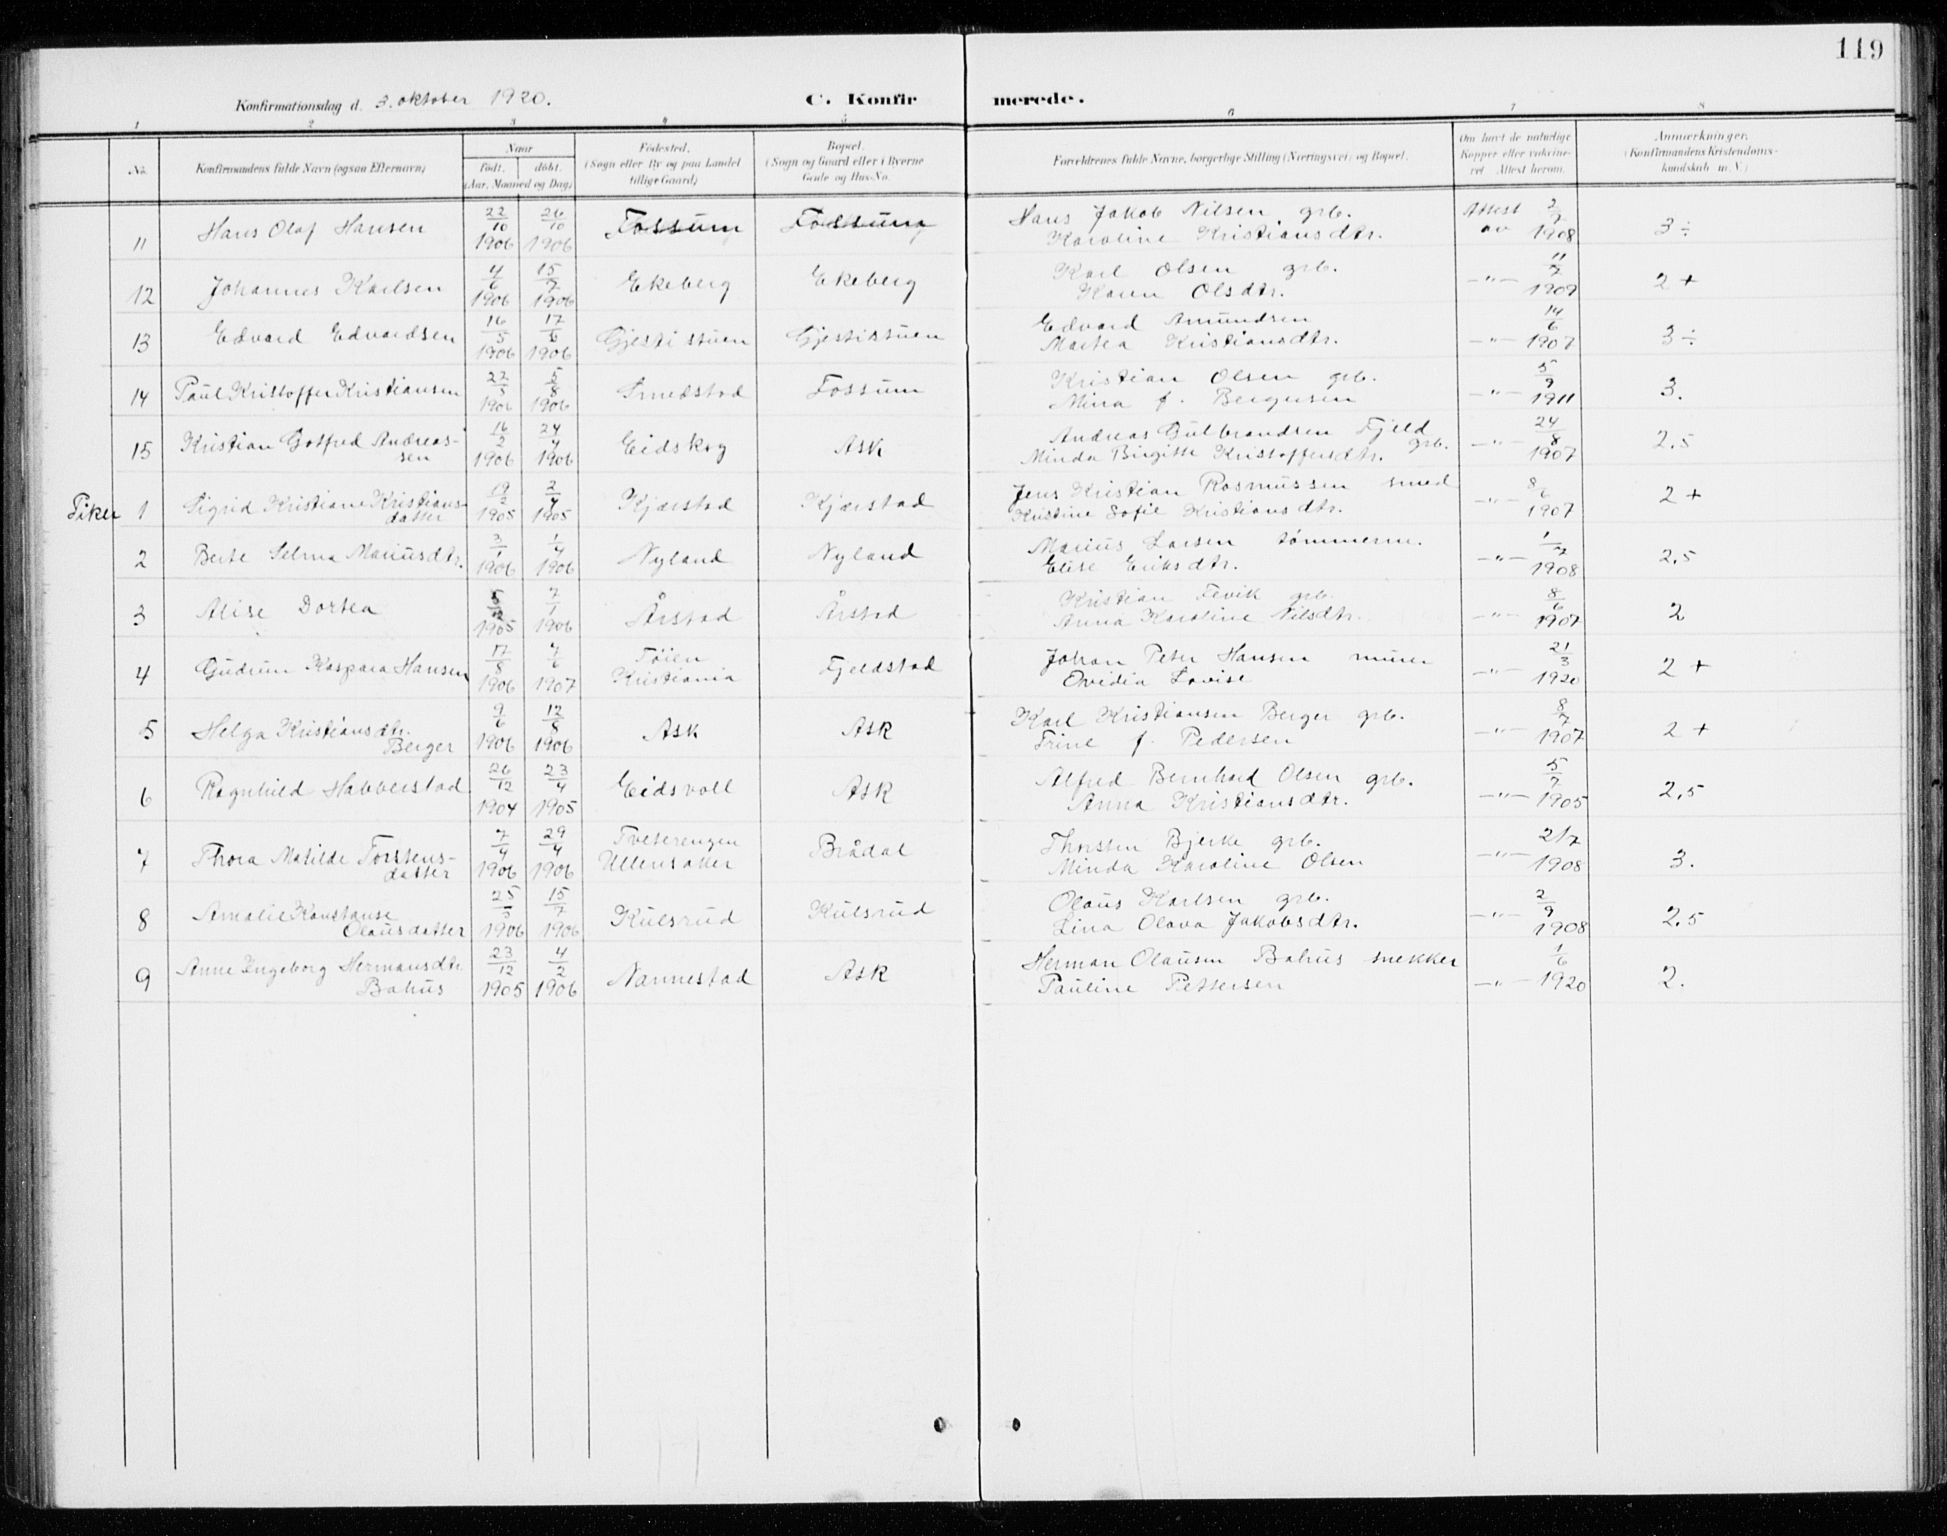 119
Konfirmationsdag d. 3. oktober 1920. C. Konfirmerede.
1 2 3 4 5 6 7 8
No. Konfirmandens fulde Navn (ogsaa Efternavn) Naar født. døbt. (Aar, Maaned og Dag) Fødested. (Sogn eller By og paa Landet tillige Gaard) Bopæl. (Sogn og Gaard eller i Byerne Gade og Hus-No. Forældrenes fulde Navne, borgerlige Stilling (Næringsvei) og Bopæl. Om havt de naturlige Kopper eller vakcineret. Attest herom. Anmærkninger. (Konfirmandens Kristendomskundskab m. V.)
11 Hans Olaf Hansen 22/10 1906 26/10 1906 Fossum Fossum Hans Jakob Nilsen grb. Attest av 1908 3 ÷
Karoline Kristiansdtr.
12 Johannes Karlsen 4/6 1906 15/7 1906 Ekeberg Ekeberg Karl Olsen grb. -"- 11/7 1907 2 +
Karen Olsdtr.
13 Edvard Edvardsen 16/5 1906 17/6 1906 Gjestistuen Gjestistuen Edvard Amundsen -"- 14/6 1907 3 ÷
Martea Kristiansdtr.
14 Paul Kristoffer Kristiansen 22/5 1906 5/8 1906 Smedstad Fossum Kristian Olsen grb. -"- 5/9 1911 3.
Mina f. Bergersen
15 Kristian Gotfred Andreas- 16/2 1906 24/4 1906 Eidskog Ask Andreas Gulbrandsen Fjeld grb. -"- 24/8 1907 2.5
sen Minda Birgitte Kristoffersdtr.
Piker 1 Sigrid Kristiane Kristians- 19/2 1905 2/4 1905 Kjærstad Kjærstad Jens Kristian Rasmussen smed -"- 8/6 1907 2 +
datter Kristine Sofie Kristiansdtr.
2 Berte Selma Mariusdtr. 3/1 1906 1/4 1906 Nyland Nyland Marius Larsen tømmerm. -"- 1/7 1908 2.5
Elise Eriksdtr.
3 Alise Dortea 5/12 1905 7/1 1906 Årstad Årstad Kristian Fevik grb. -"- 8/6 1907 2
Anna Karoline Nilsdtr.
4 Gudrun Kaspara Hansen 17/8 1906 7/6 1907 Tøien Fjeldstad Johan Peter Hansen murer -"- 21/3 1920 2 +
Kristiania Ovidia Lovise
5 Helga Kristiansdtr. 9/6 1906 12/8 1906 Ask Ask Karl Kristiansen Berger grb. -"- 8/7 1907 2 +
Berger Trine f. Pedersen
6 Ragnhild Habberstad 26/12 1904 23/4 1905 Eidsvoll Ask Alfred Bernhard Olsen grb. -"- 5/7 1905 2.5
Anna Kristiansdtr.
7 Thora Matilde Torstens- 7/4 1906 29/4 1906 Tveterengen Brådal Thorsten Bjerke grb. -"- 2/7 1908 3.
datter Ullensaker Minda Karoline Olsen
8 Amalie Konstanse 25/5 1906 15/7 1906 Kulsrud Kulsrud Olaus Karlsen grb. -"- 2/9 1908 2.5
Olausdatter Lina Olava Jakobsdtr.
9 Anne Ingeborg Hermansdtr. 23/12 1905 4/2 1906 Nannestad Ask Herman Olausen Bahus snekker -"- 1/6 1920 2.
Bahus Pauline Pettersen